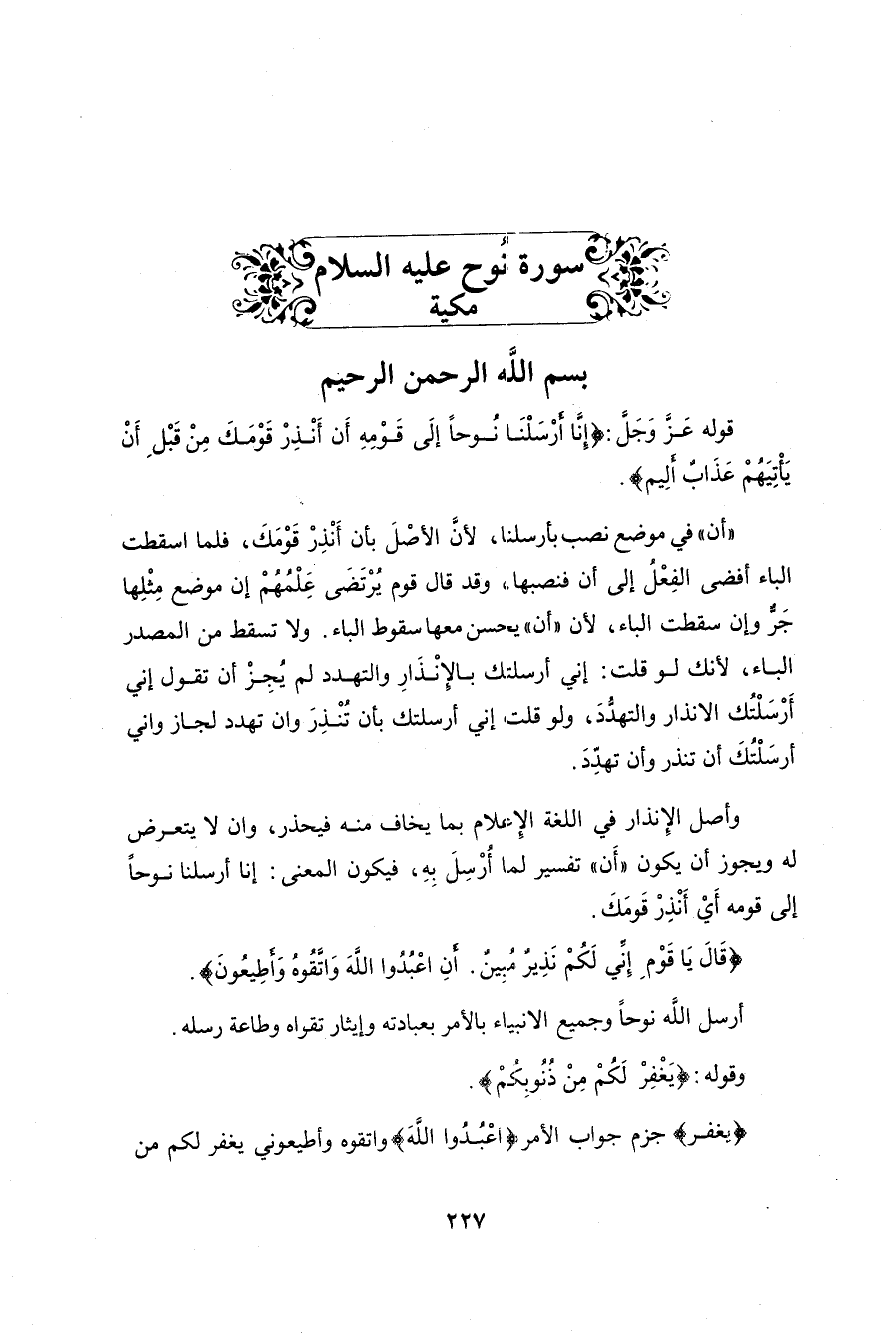 سورة نُوح عليه السلام
مكية
بسم اللَّه الرحمن الرحيم
قوله عَـزَّ وَجَلَّ: ﴿إِنَّا أَرْسَلْنَـا نُـوحاً إِلَى قَـوْمِهِ أَن أَنْـذِرْ قَوْمَـكَ مِنْ قَبْلِ أَنْ
يَأْتِيَهُمْ عَذَابٌ أَلِيم﴾.
«أن» في موضع نصب بأرسلنا، لأنَّ الأصْلَ بأن أَنْذِرْ قَوْمَكَ، فلما اسقطت
الباء أفضى الفِعْلُ إلى أن فنصبها، وقد قال قوم يُرْتَضَى عِلْمُهُمْ إن موضع مِثْلِها
جَرٌّ وإن سقطت الباء، لأن «أن» يحسن معها سقوط الباء. ولا تسقط من المصدر
البـاء، لأنك لـو قلت: إني أرسلتك بـالإِنْـذَارِ والتهـدد لم يُجِـزْ أن تقـول إني
أَرْسَلْتُك الانذار والتهدُّدَ، ولو قلت إني أرسلتك بأن تُنْـذِرَ وان تهدد لجـاز واني
أرسَلْتُكَ أن تنذر وأن تهدِّدَ.
وأصل الإِنذار في اللغة الإِعلام بما يخاف منـه فيحذر، وان لا يتعـرض
له ويجوز أن يكون «أَن» تفسير لما أُرْسِلَ بِهِ، فيكون المعنى: إنا أرسلنا نـوحاً
إلى قومه أَيْ أَنْذِرْ قَومَكَ.
﴿قَالَ يَا قَوْمِ إِنِّي لَكُمْ نَذِيرٌ مُبِينٌ. أَنِ اعْبُدُوا اللَّهَ وَاتَّقُوهُ وَأَطِيعُونَ﴾.
أرسل اللَّه نوحاً وجميع الانبياء بالأمر بعبادته وإيثار تقواه وطاعة رسله.
وقوله: ﴿يَغْفِرْ لَكُمْ مِنْ ذُنُوبِكُمْ﴾.
﴿يغفـر﴾ جزم جواب الأمر ﴿اعْبُـدُوا اللَّهَ﴾ واتقوه وأطيعوني يغفر لكم من
٢٢٧